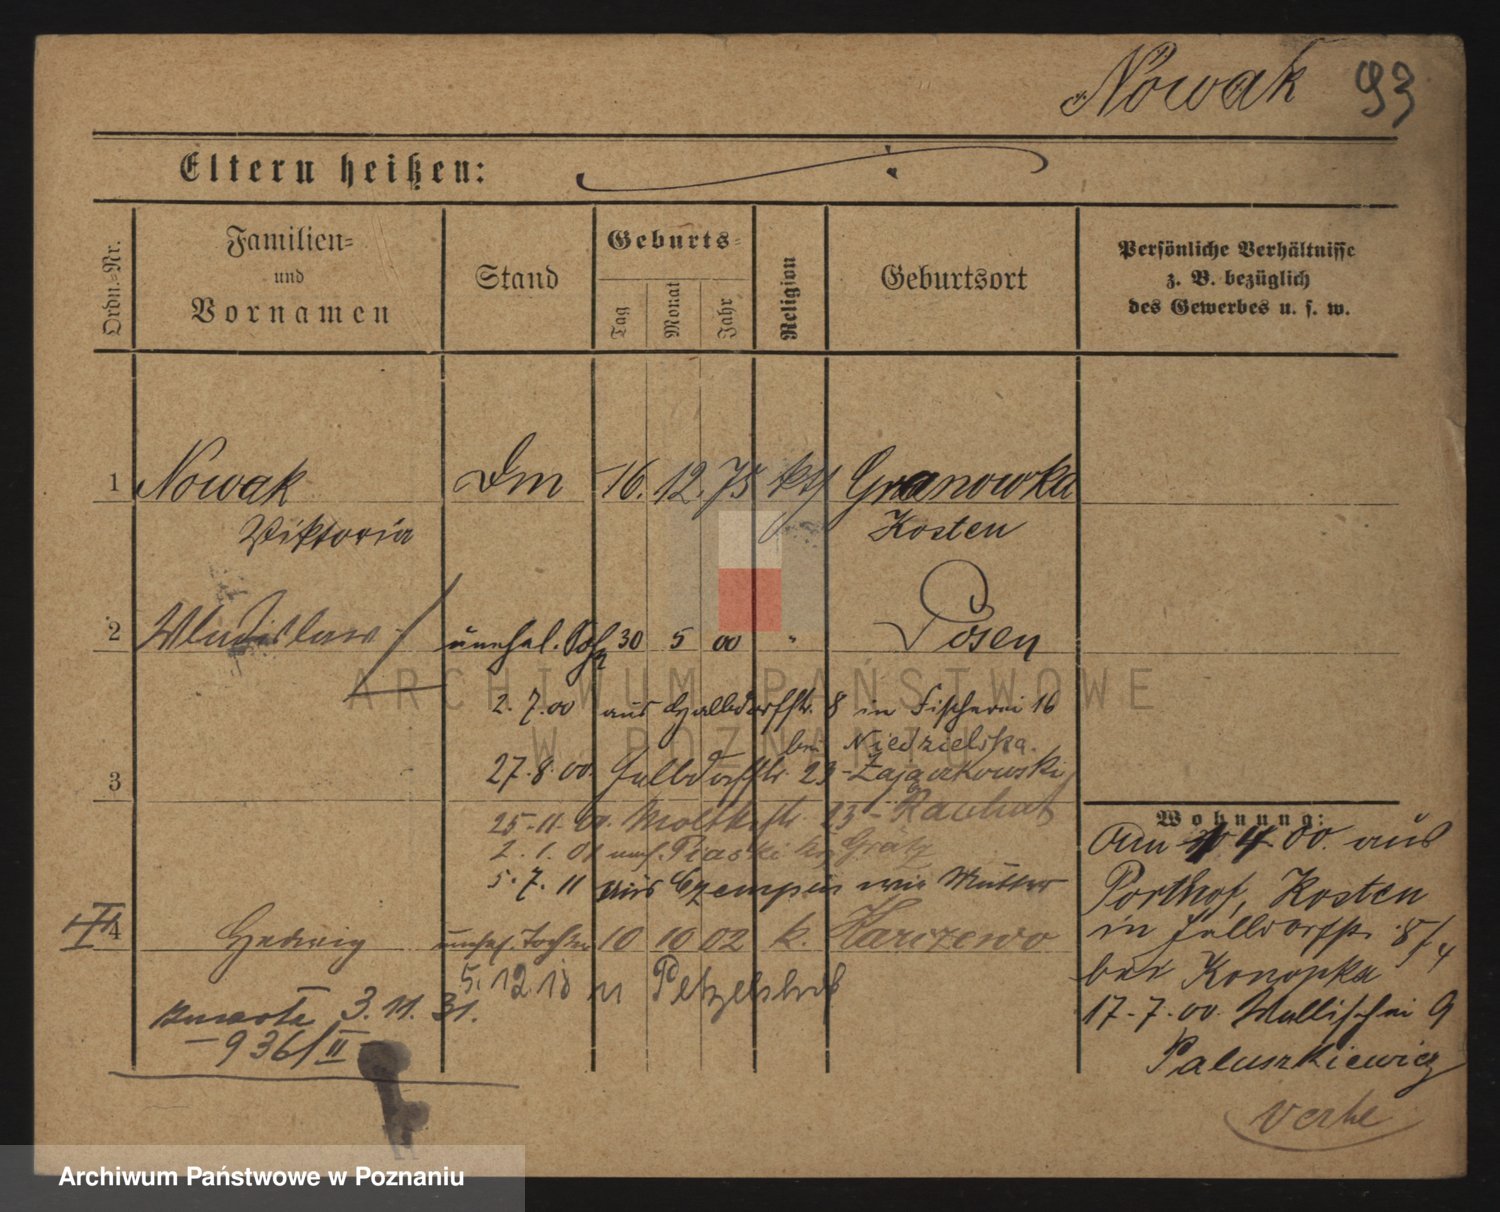 Nowak 93
Eltern heißen:
Ordn.-Nr.
Familien-
und
Vornamen
Stand
Geburts-
Tag
Monat
Jahr
Religion
Geburtsort
Persönliche Verhältnisse
z. B. bezüglich
des Gewerbes u. s. w.
1 Nowak Dm 16. 12. 75 kth Granowka
Viktoria Kosten
2 Wladislaw unehel. Sohn 30 5 00 " Posen
2. 7. 00 aus Halbdorfstr. 8 in Fischerei 16
bei Niedzielska.
3 27. 8. 00. Halbdorfstr. 23 - Zajączkowski
25-11-00. Moltkestr. 23 -
2. 1. 01 Piaski Grätz
5. 7. 11 aus Czempin wie Mutter
4 Hedwig unehel. Tochter 10 10 02 k. Karczewo
5. 12. 18 n
3. 11. 31.
- 936/II
Wohnung:
Am 1 4 00. aus
Porthof, Kosten
in Halbdorfstr. 8/4
bei Konopka
17-7-00. Wallischei 9
Paluszkiewicz
verhe
ARCHIWUM PAŃSTWOWE
W POZNANIU
Archiwum Państwowe w Poznaniu